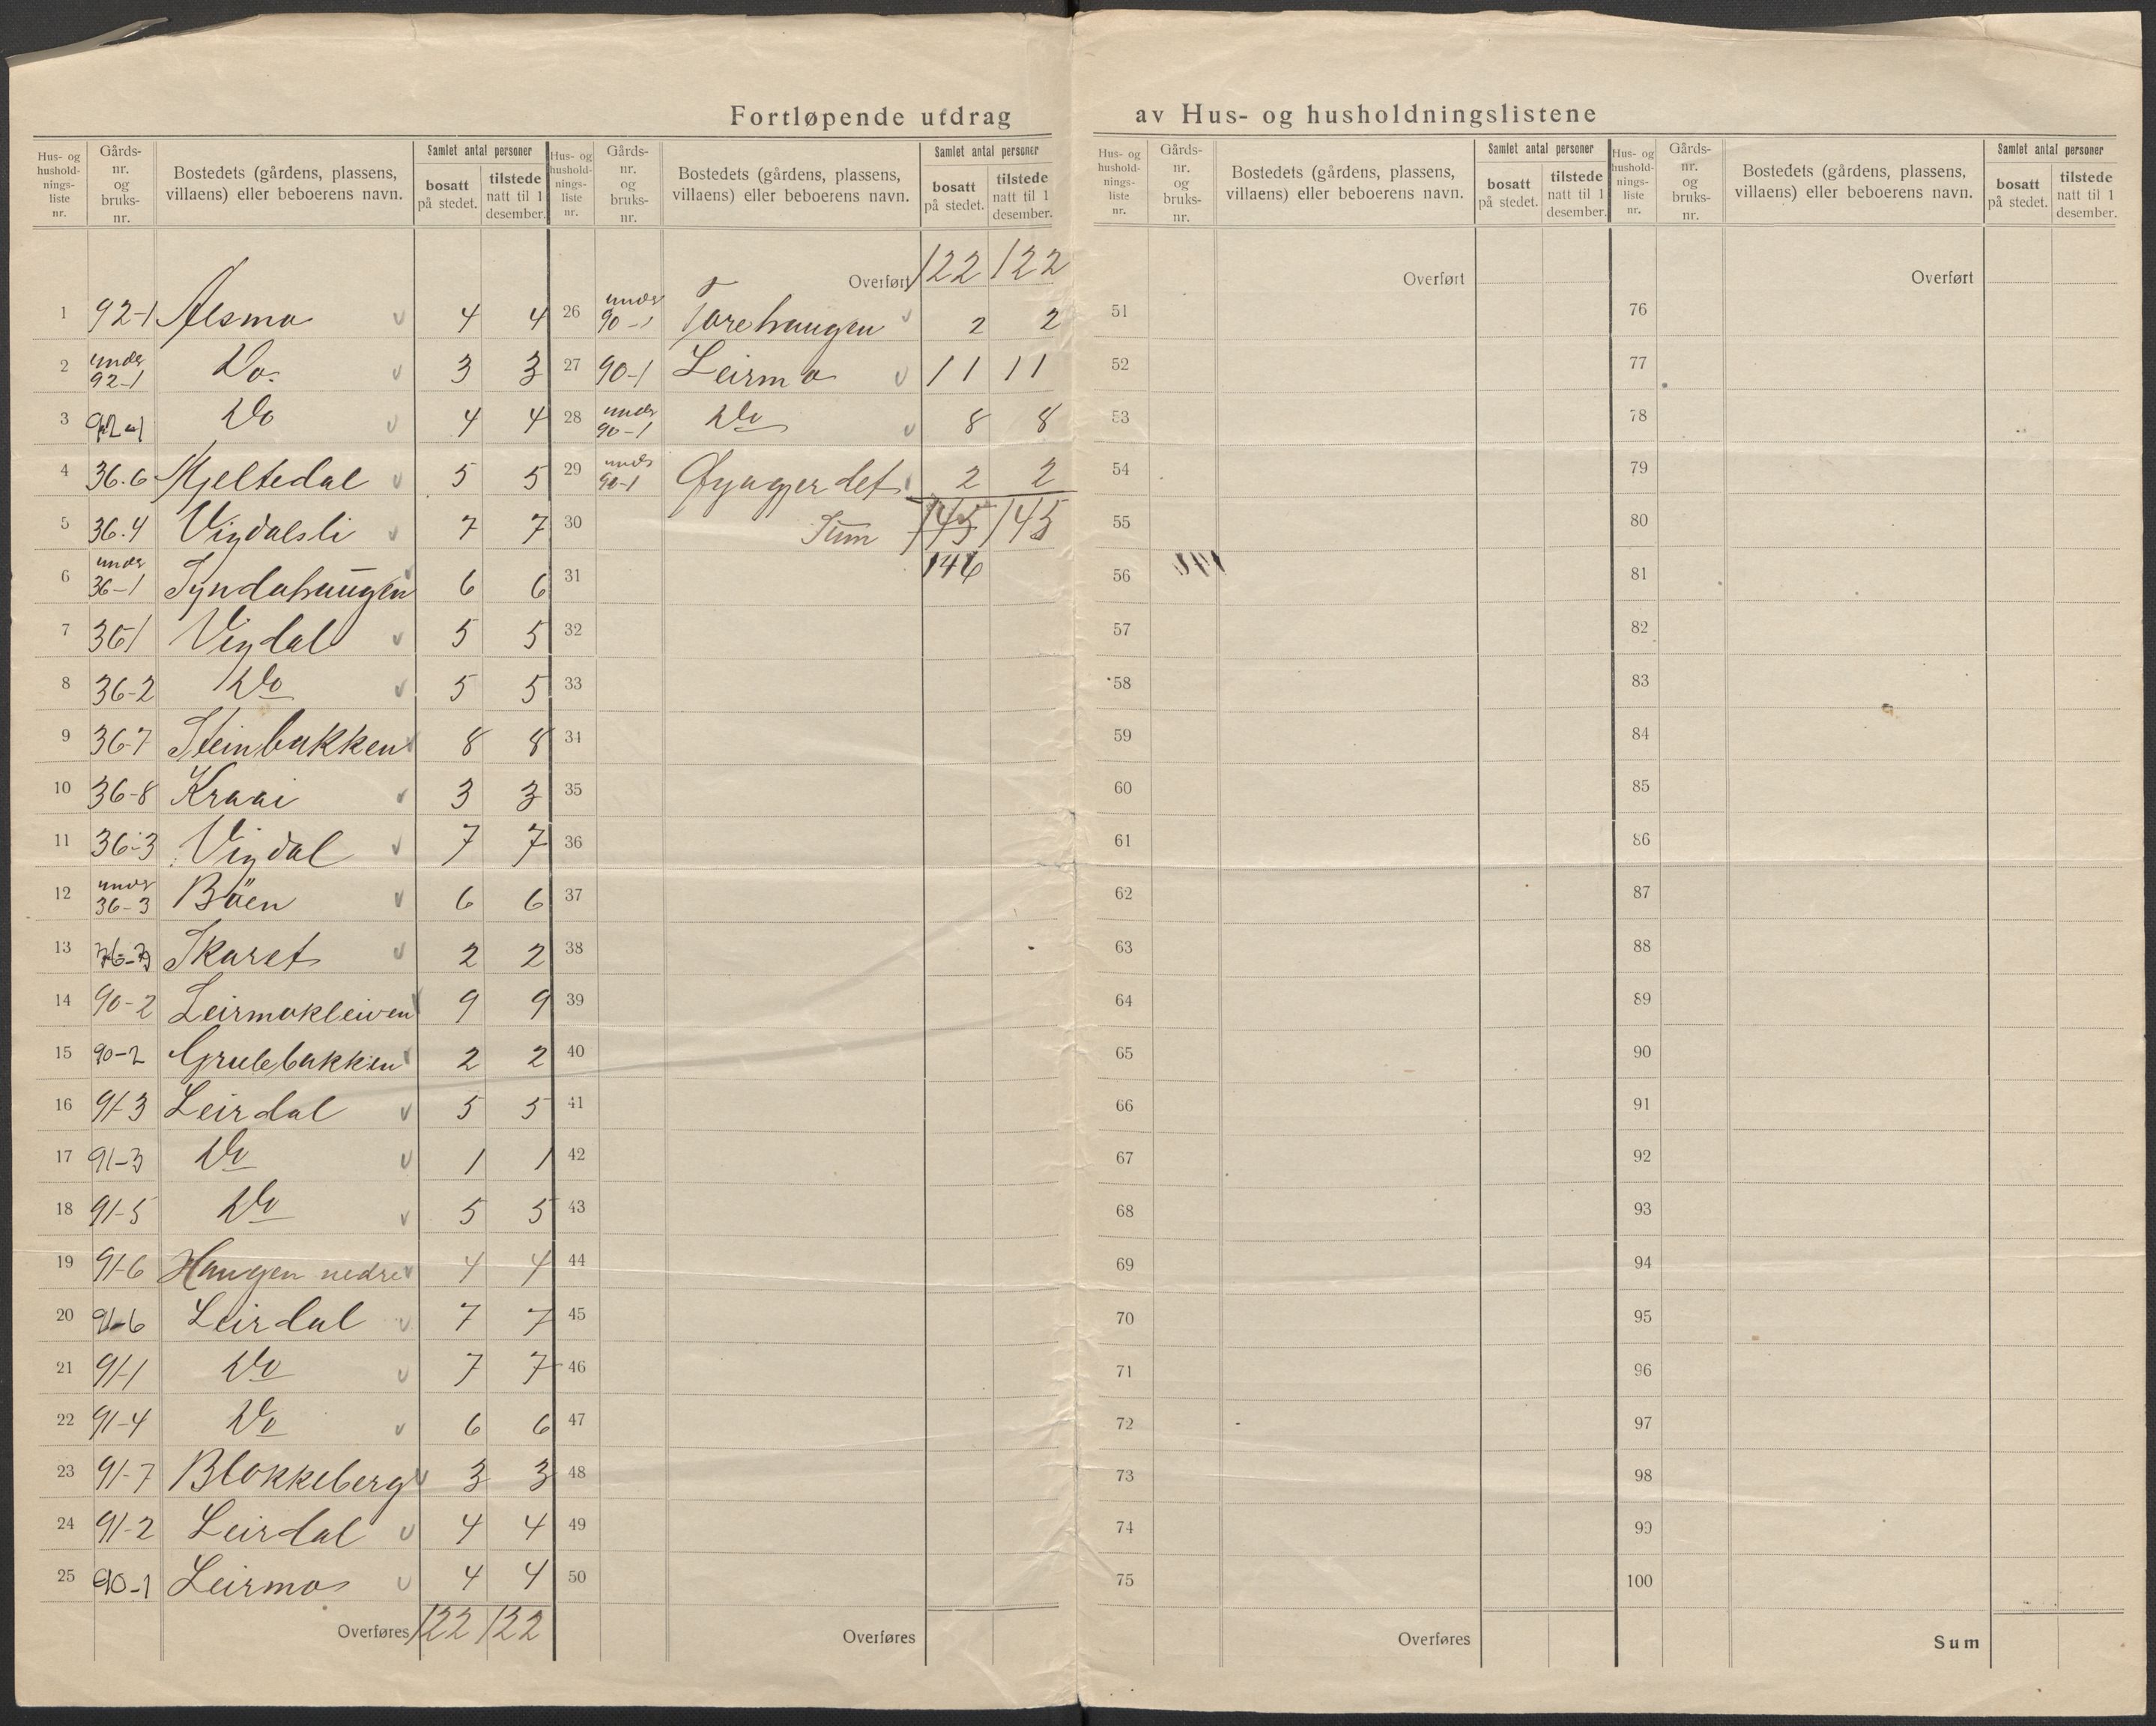 Fortløpende utdrag av Hus- og husholdningslistene
Hus- og hushold-nings-liste nr. Gårds-nr. og bruks-nr. Bostedets (gårdens, plassens, villaens) eller beboerens navn. Samlet antal personer bosatt på stedet. tilstede natt til 1 desember.
1 92-1 Alsmo v 4 4
2 under 92-1 Do. v 3 3
3 92-1 Do v 4 4
4 36.6 Mjeltedal v 5 5
5 36.4 Vigdalsli v 7 7
6 under 36-1 Syndahaugen v 6 6
7 36-1 Vigdal v 5 5
8 36-2 Do v 5 5
9 36-7 Steinbakken v 8 8
10 36-8 Kraai v 3 3
11 36-3 Vigdal v 7 7
12 under 36-3 Böen v 6 6
13 Skaret v 2 2
14 90-2 Leirmokleiven v 9 9
15 90-2 Grulebakken v 2 2
16 91-3 Leirdal v 5 5
17 91-3 Do v 1 1
18 91-5 Do v 5 5
19 91-6 Haugen nedre v 4 4
20 91-6 Leirdal v 7 7
21 91-1 Do v 7 7
22 91-4 Do v 6 6
23 91-7 Blokkeberg v 3 3
24 91-2 Leirdal v 4 4
25 90-1 Leirmo v 4 4
Overføres 122 122
Hus- og hushold-nings-liste nr. Gårds-nr. og bruks-nr. Bostedets (gårdens, plassens, villaens) eller beboerens navn. Samlet antal personer bosatt på stedet. tilstede natt til 1 desember.
Overført 122 122
26 under 90-1 Torehaugen v 2 2
27 90-1 Leirmo v 11 11
28 under 90-1 Do v 8 8
29 under 90-1 Øygjerdet v 2 2
30 Sum 145 145
31 146
32
33
34
35
36
37
38
39
40
41
42
43
44
45
46
47
48
49
50
Overføres
Hus- og hushold-nings-liste nr. Gårds-nr. og bruks-nr. Bostedets (gårdens, plassens, villaens) eller beboerens navn. Samlet antal personer bosatt på stedet. tilstede natt til 1 desember.
Overført
51
52
53
54
55
56
57
58
59
60
61
62
63
64
65
66
67
68
69
70
71
72
73
74
75
Overføres
Hus- og hushold-nings-liste nr. Gårds-nr. og bruks-nr. Bostedets (gårdens, plassens, villaens) eller beboerens navn. Samlet antal personer bosatt på stedet. tilstede natt til 1 desember.
Overført
76
77
78
79
80
81
82
83
84
85
86
87
88
89
90
91
92
93
94
95
96
97
98
99
100
Sum